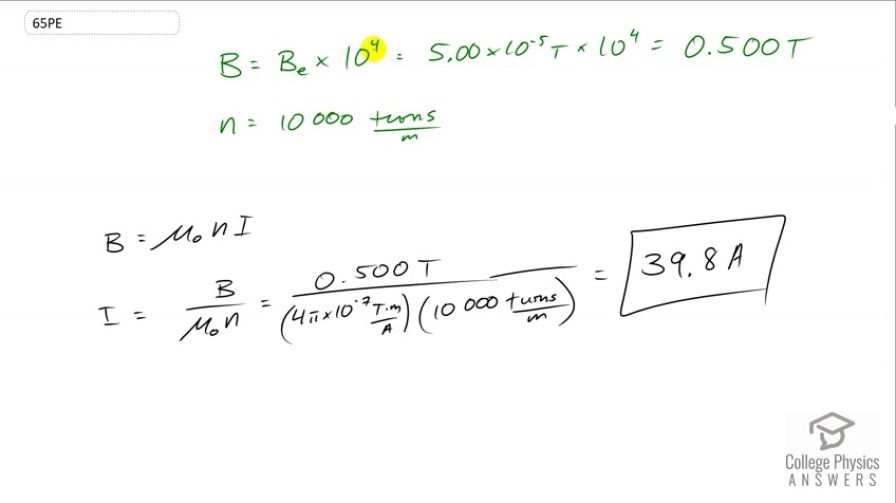 65PE
B = Bₑ × 10⁴ = 5.00×10⁻⁵ T × 10⁴ = 0.500 T
n = 10 000 turns/m
B = μ₀ n I
I = B/(μ₀ n) = 0.500 T / ((4π×10⁻⁷ T·m/A)(10 000 turns/m)) = 39.8 A
College Physics
ANSWERS